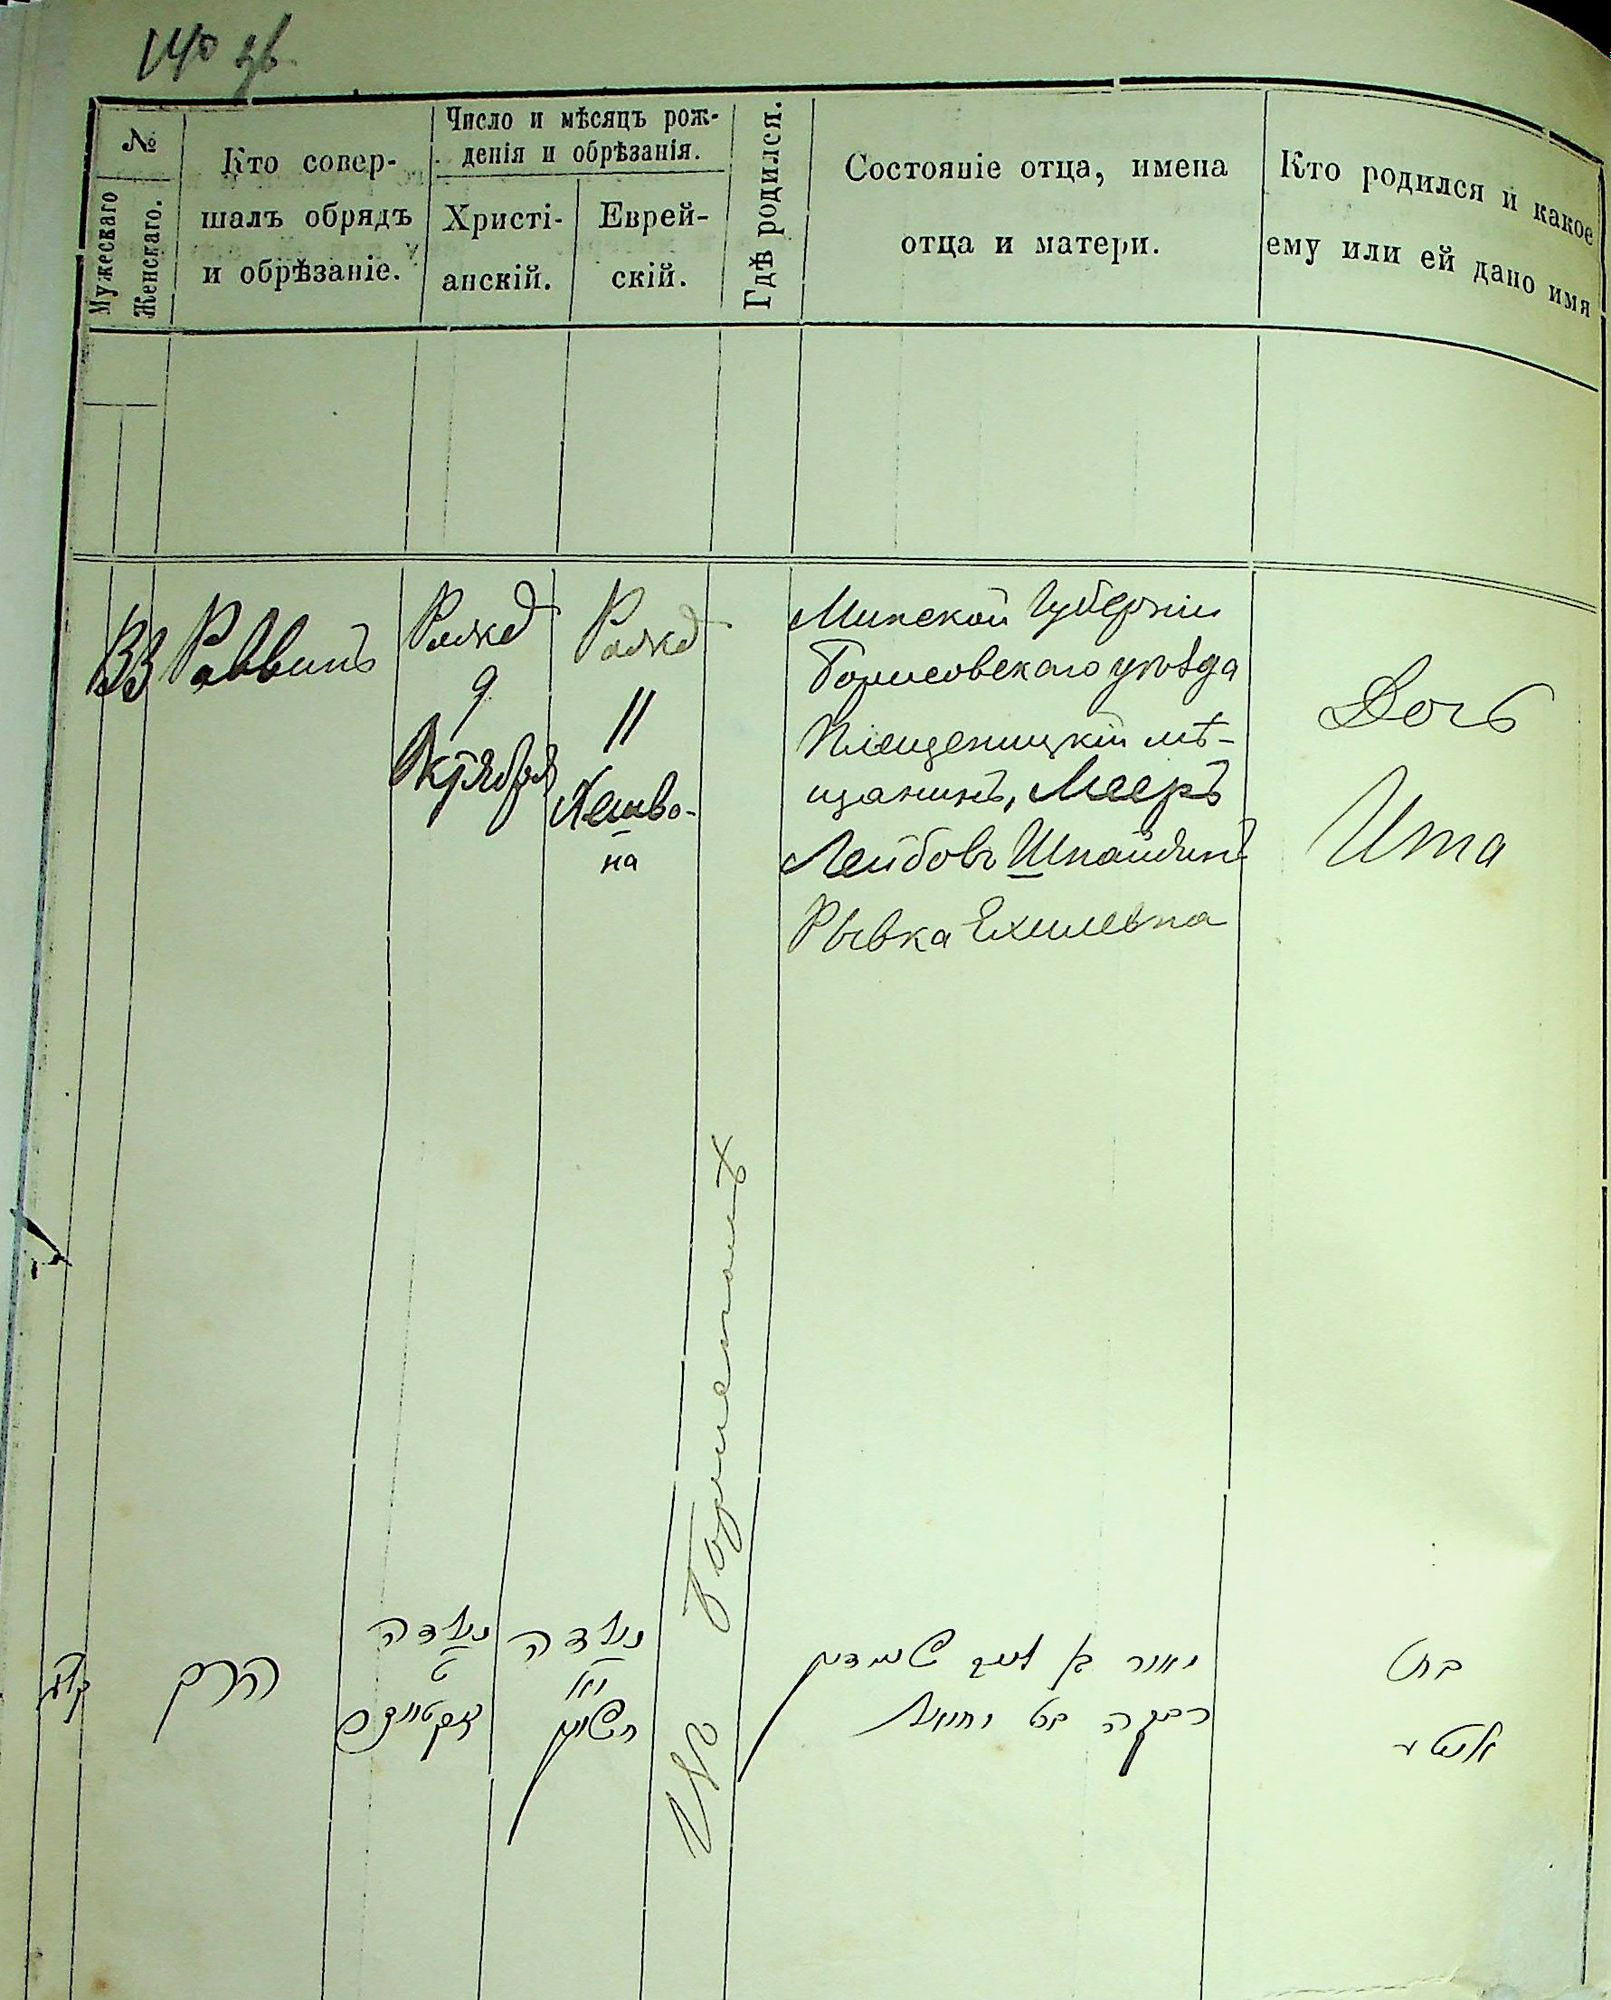 140 зв.
№
Мужескаго
Женскаго.
Кто совер-
шалъ обрядъ
и обрѣзаніе.
Число и мѣсяцъ рож-
денія и обрѣзанія.
Христі-
анскій.
Еврей-
скій.
Гдѣ родился.
Состояніе отца, имена
отца и матери.
Кто родился и какое
ему или ей дано имя
33
Раввинъ
Рожд
9
Октября
Рожд
11
Хешво-
на
Минской Губерніи
Борисовскаго уѣзда
Плещеницкій мѣ-
щанинъ, Мееръ
Лейбовъ Шпайдинъ
Рывка Ехилевна
Дочь
Ита
נולדה
ט
נולדה
חשון
רבקה בת
בת